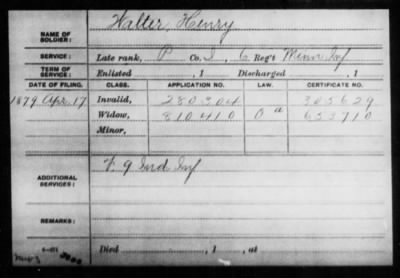 Halter, Henry
NAME OF SOLDIER:
SERVICE: Late rank, P Co. I, 6 Reg't Minn Inf
TERM OF SERVICE: Enlisted , 1 Discharged , 1
DATE OF FILING. CLASS. APPLICATION NO. LAW. CERTIFICATE NO.
1879 Apr. 17 Invalid, 280304 305629
Widow, 810410 653710
Minor,
V. 9 Ind Inf
ADDITIONAL SERVICES:
REMARKS:
Died , 1 , at